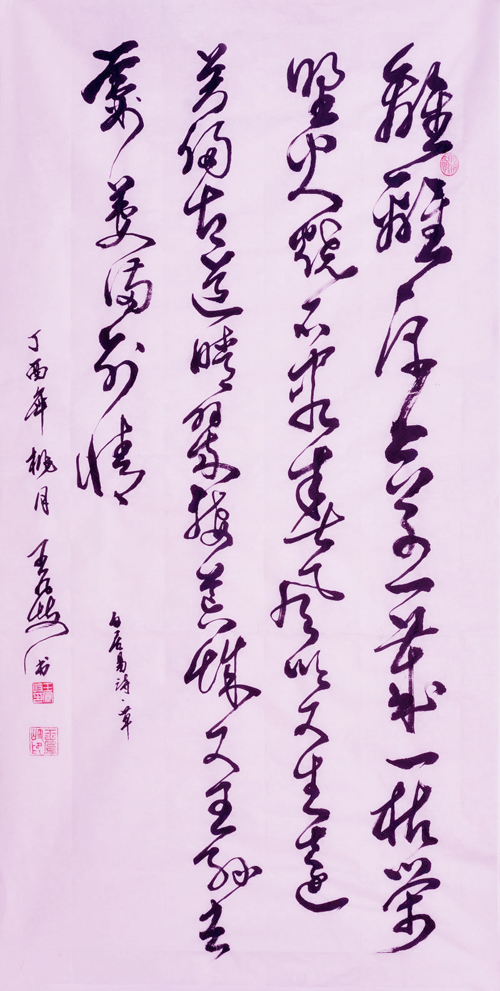 離離原上草一歲一枯榮
野火燒不盡春風吹又生遠
芳侵古道晴翠接荒城又王孫去
萋萋滿別情
白居易詩、草
丁酉年桃月王书